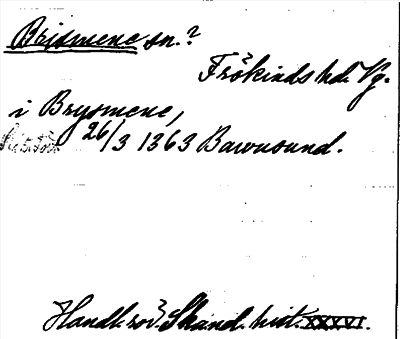 Brismene sn.?
Frökinds hd. Vg.
i Brysmene,
26/3 1363 Bawnsund.
Handl. rör. Skand. hist. XXXVI.